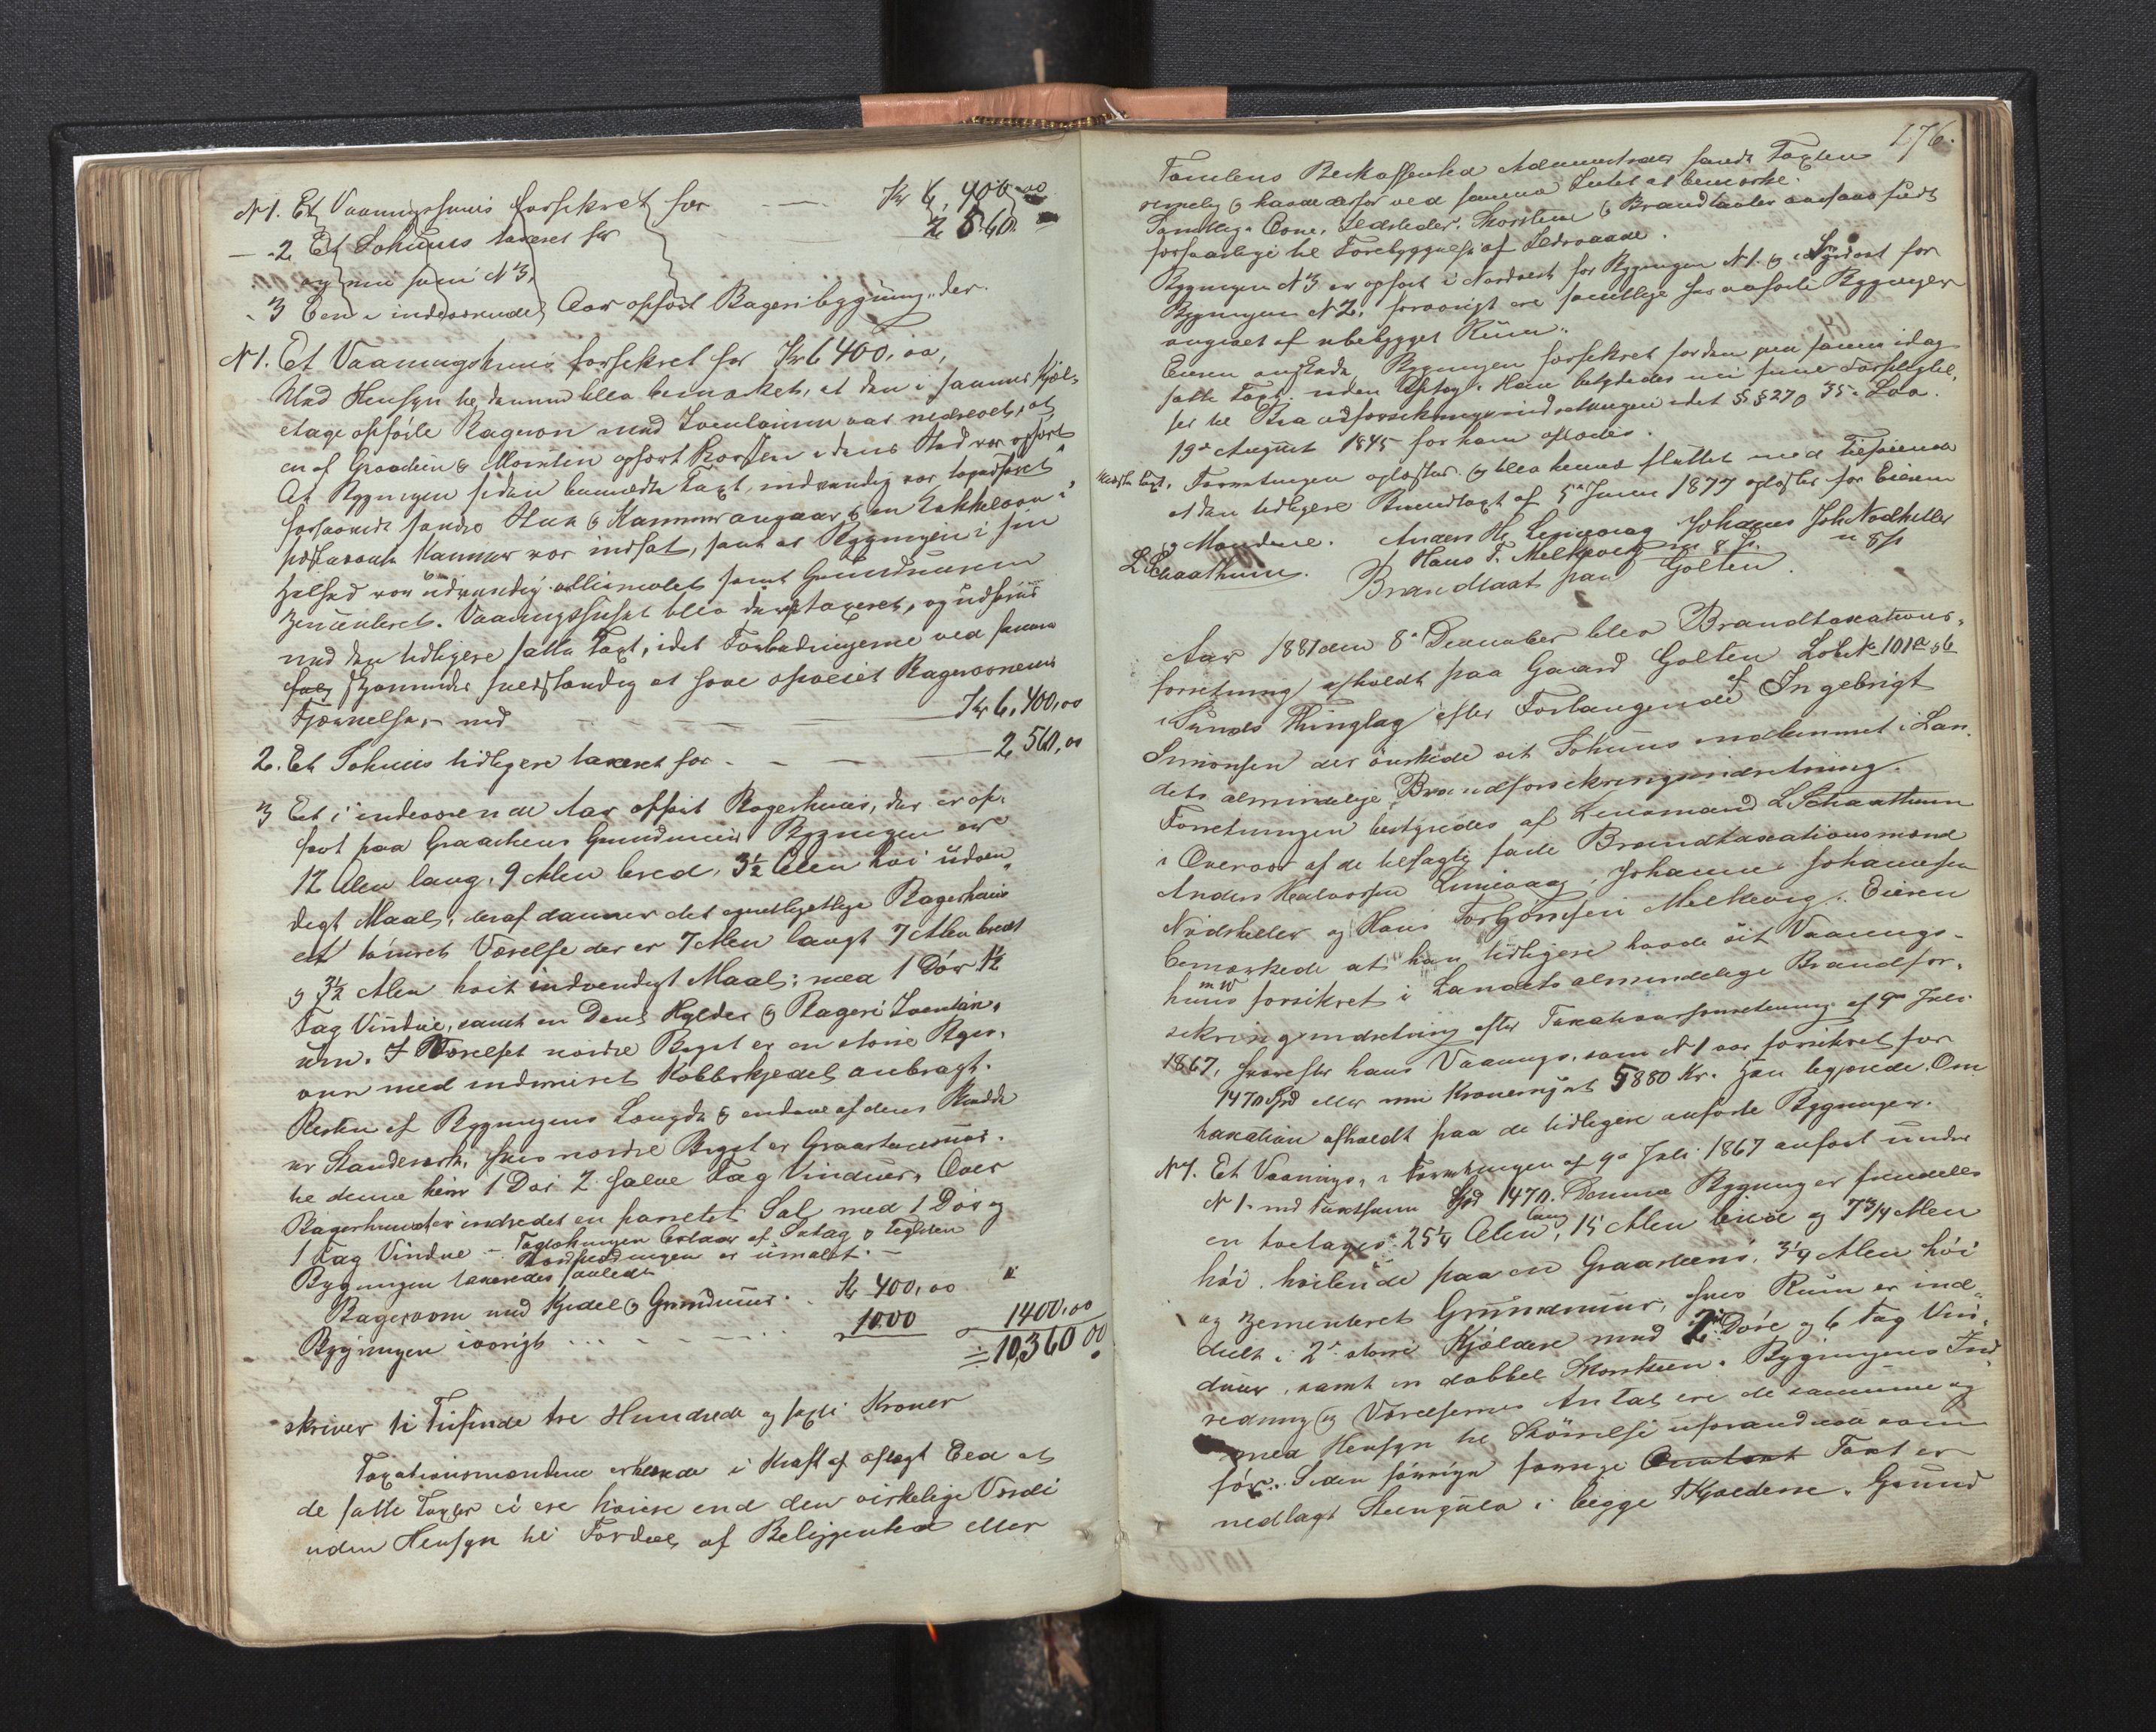 N 1. Et Vaaningshuus forsikret for — Kr 6,400,00
— 2 Et Sohuus taxeret for — 2 560.
og nu som N 3,
" 3 Een i indeværende Aar opført Bageribygning, der.
N 1. Et Vaaningshuus forsikret for Kr 6400,00,
Med Hensyn til denne blev bemærket, at den i sammes Kjæl-
etage opførte Bagerovn med Inventarium var nedrevet, at
en af Graasteen & Murstin opført Skorsten i dens Sted var opført
At Bygningen siden benævnte Taxt, indvendig var tapetseret
forsaavidt søndre Stue & Kammer angaar & en Kakkelovn i
Kammer var indsat, samt at Bygningen i sin
Helhed var udvendig oliemalet samt Grundmuren
Zementeret. Vaaningshuset blev derpaa taxeret, og udførtes
med den tidligere satte Taxt, idet Forbedringerne ved samme
skjønnedes fuldstændig at have opveiet Bagerovnens
Fjernelse, — med — Kr 6,400,00
2. Et Sohuus tidligere taxeret for — 2 560,00
3 Et i indeværende Aar opført Bagerhuus, der er op-
ført paa Graasteens Grundmuur Bygningen er
12 Alen lang, 9 Alen bred, 3½ Alen høi udven-
digt Maal, deraf danner det egentlige Bagerhuus
et tømret Værelse der er 7 Alen langt 7 Alen bredt
& 3½ Alen høit indvendigt Maal; med 1 Dør 1½
Fag Vindue, samt en Deel Hylder & Bageri Inventari-
um. I Værelset nordre Bygt er en større Bager-
ovn med indmuret Kobberkjedel anbragt.
Resten af Bygningens Længde & endeel af dens Bredde
er Standerverk, hvis nordre Bygt er Graasteensmur.
til denne hører 1 Dør 2 halve Fag Vinduer. Over
Bagerhuuset er indredet en panelet Sal med 1 Dør og
1 Fag Vindue — Taglækningen bestaar af Sutag & Teglsten
Bordklædningen er umalet. —
Bygningen taxeredes saaledes
Bagerovn med Kjedel & Grundmuur. Kr 400,00
Bygningen iøvrigt . . . 1000 — 1400,00
= 10,360 00
skriver ti Tusinde tre Hundrede og sexti Kroner
Taxationsmændene erklærede i Kraft af aflagt Eed at
de satte Taxter ei ere høiere end den virkelige Værdi
uden Hensyn til Fordeel af Beliggenhed eller
276.
Tomtens Beskaffenhed Administrator fandt Taxten
rimelig & havde derfor ved samme Intet at bemærke.
Samtlige Ovne, Ildsteder, Skorstene & Brandtavler ansaaes fuldt
forsvarlige til Forebyggelse af Ildsvaade.
Bygningen N 3 er opført i Nordvest for Bygningen N 1. & i Sydost for
Bygningen N 2, forøvrigt ere samtlige her anførte Bygninger
omgivet af ubebygget Rum.
Eieren ønskede Bygningen forsikret for den paa samme idag
satte Taxt. uden Optag. Han betydedes sine Forpligtel-
ser til Brandforsikringsindretningen idet §§ 27 & 35 i Lov
19de August 1845 for ham oplæstes.
Forretningen oplæstes & blev hermed sluttet med Tilføiende
at den tidligere Brandtaxt af 5te Juni 1877 oplæstes for Eieren
& Mændene. Anders H. Leirvaag Johannes Joh Nodheller
L Schaathum. Hans T. Melkevig m. f. P. m f P
Brandtaxt paa Golten.
Aar 1881 den 8de December blev Brandtaxations-
forretning afholdt paa Gaard Golten Løbe No 101a & b
i Sunds Thinglag efter Forlangende af Ingebrigt
Simonsen der ønskede sit Sohuus indlemmet i Lan-
dets almindelige Brandforsikringsindretning.
Forretningen bestyredes af Lensmand L Schaathum
i Overvær af de tilsagte faste Brandtaxationsmænd
Anders Halvorsen Leirvaag, Johannes Johannesen
Nodheller og Hans Torbjørnsen Melkevig. Eieren
bemærkede at han tidligere havde sit Vaanings-
huus m V forsikret i Landets almindelige Brandfor-
sikringsindretning efter Taxationsforretning af 9de Juli
1867, hvorefter hans Vaanings, som N 1 var forsikret for
1470 Spd eller nu Kronemynt 5880 Kr. Han begjærede Om-
taxation afholdt paa de tidligere anførte Bygninger.
N 1. Et Vaanings, i Forretningen af 9de Juli 1867 anført under
N 1. med Taxtsum Spd 1470. Denne Bygning er fremdeles
en toetages 25¼ Alen lang, 15 Alen bred og 7¾ Alen
høi. hvilende paa en Graasteens, 3¼ Alen høi
og zementeret Grundmuur, hvis Rum er ind-
deelt i 2de større Kjældere med 2 Døre og 6 Fag Vin-
duer, samt en dobbel Skorsteen. Bygningens Ind-
redning og Værelsernes Antal ere de samme og
med Hensyn til Størrelse uforandrede som
før. Siden forrige Taxt er
nedlagt Steengulv i begge Kjældere. Grund